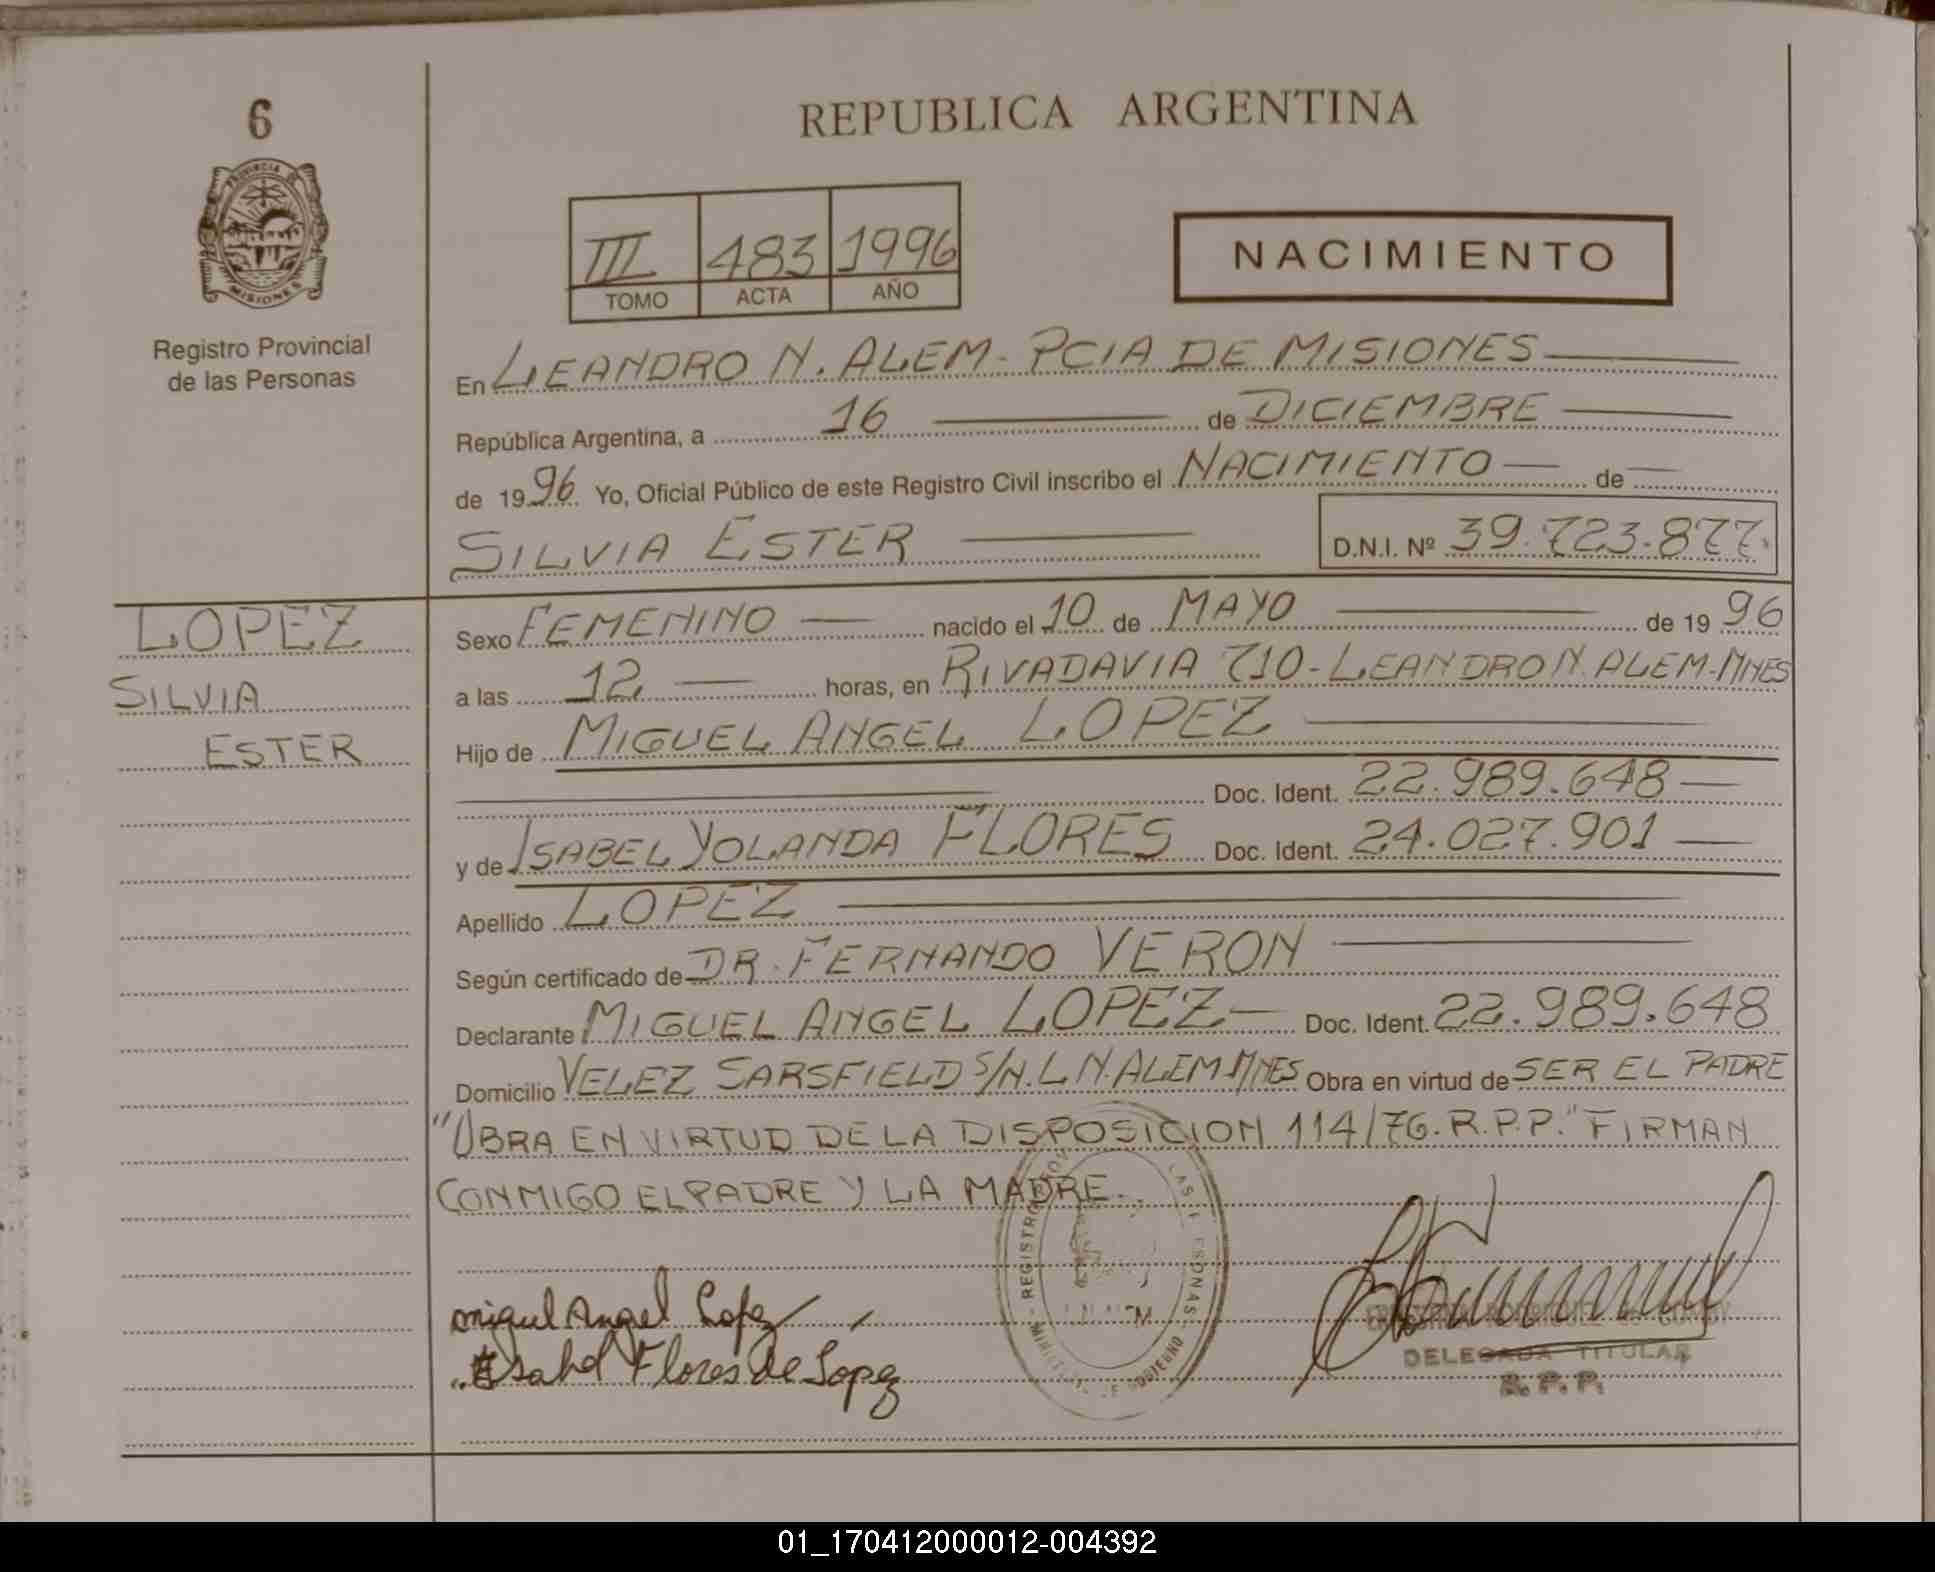 6
REPUBLICA ARGENTINA
PROVINCIA DE
MISIONES
Registro Provincial
de las Personas
III 483 1996
TOMO ACTA AÑO
NACIMIENTO
En LEANDRO N. ALEM - PCIA DE MISIONES
República Argentina, a 16 de DICIEMBRE
de 1996. Yo, Oficial Público de este Registro Civil inscribo el NACIMIENTO de
SILVIA ESTER D.N.I. Nº 39.723.877.
LOPEZ
SILVIA
ESTER
Sexo FEMENINO nacido el 10 de MAYO de 1996
a las 12 horas, en RIVADAVIA 710 - LEANDRO N. ALEM - MNES
Hijo de MIGUEL ANGEL LOPEZ
Doc. Ident. 22.989.648
y de ISABEL YOLANDA FLORES Doc. Ident. 24.027.901
Apellido LOPEZ
Según certificado de DR. FERNANDO VERON
Declarante MIGUEL ANGEL LOPEZ Doc. Ident. 22.989.648
Domicilio VELEZ SARSFIELD S/N. L N. ALEM MNES Obra en virtud de SER EL PADRE
"OBRA EN VIRTUD DE LA DISPOSICION 114/76. R.P.P." FIRMAN
CONMIGO EL PADRE Y LA MADRE.
miguel Angel Lopez
Isabel Flores de Lopez
DELEGADA TITULAR
R. P. P.
01_170412000012-004392